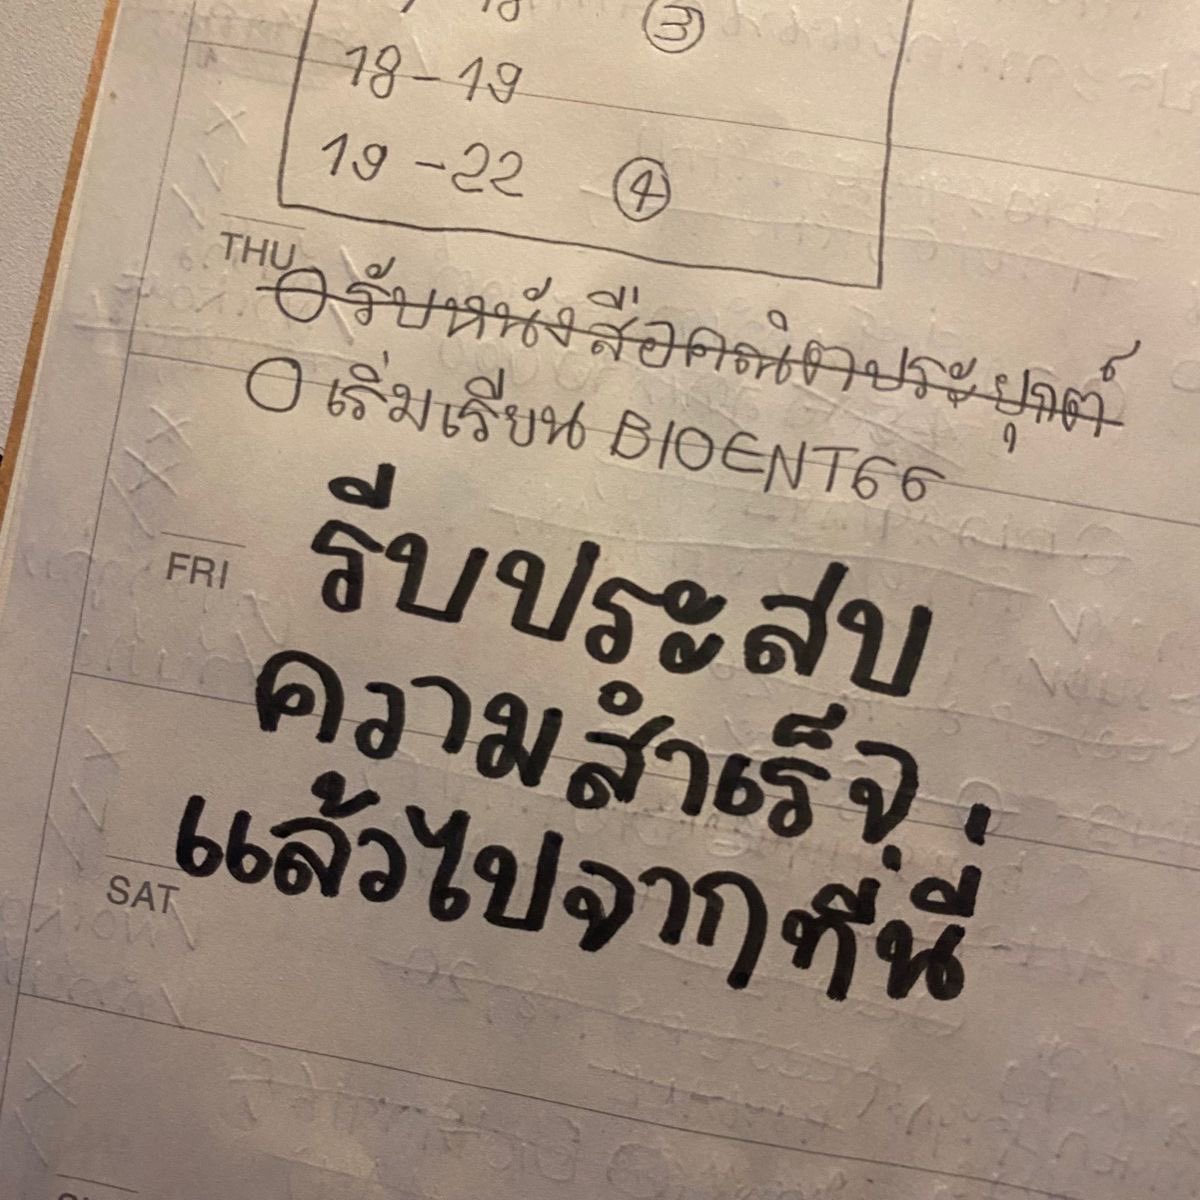 18 ③
18-19
19-22 ④
THU
รับหนังสือคณิตประยุกต์
เริ่มเรียน BIOENT66
FRI
รีบประสบ
ความสำเร็จ
แล้วไปจากที่นี่
SAT